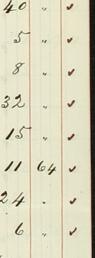 40 " ✓
5 " ✓
8 " ✓
32 " ✓
15 " ✓
11 64 ✓
24 " ✓
6 " ✓